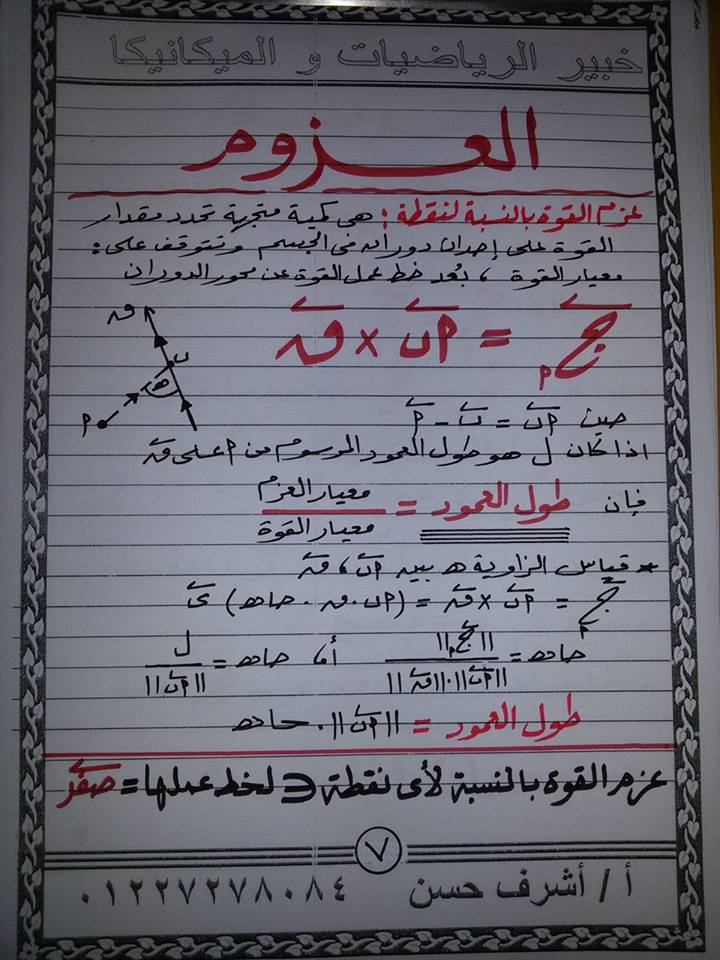 خبير الرياضيات و الميكانيكا
العزوم
عزم القوة بالنسبة لنقطة : هى كمية متجهة تحدد مقدار
القوة على إحداث دوران فى الجسم وتتوقف على :
معيار القوة ، بُعد خط عمل القوة عن محور الدوران
ج م = م ن × ق
ق
ن
ه
م
حيث م ن = ن - م
اذا كان ل هو طول العمود المرسوم من م على ق
فإن طول العمود = معيار العزم / معيار القوة
* قياس الزاوية ه بين م ن ، ق
ج م = م ن × ق = (م ن . ق . حا ه) ى
حا ه = ||ج م|| / ||م ن||.||ق|| أما حا ه = ل / ||م ن||
طول العمود = ||م ن|| . حا ه
عزم القوة بالنسبة لأى نقطة ∈ لخط عملها = صفر
٧
أ / أشرف حسن ٠١٢٢٧٢٧٨٠٨٤